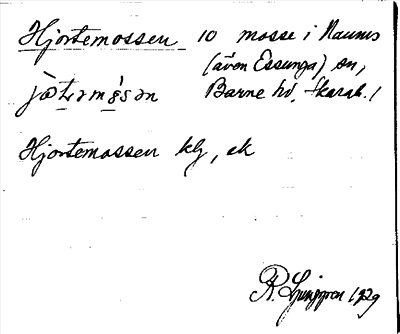 Hjortemossen 10 mosse i Naums
(även Essunga) sn,
jòt̨əmɞ̀sən Barne hd, Skarab. l
Hjortemossen klg, ek
R. Ljunggren 1929